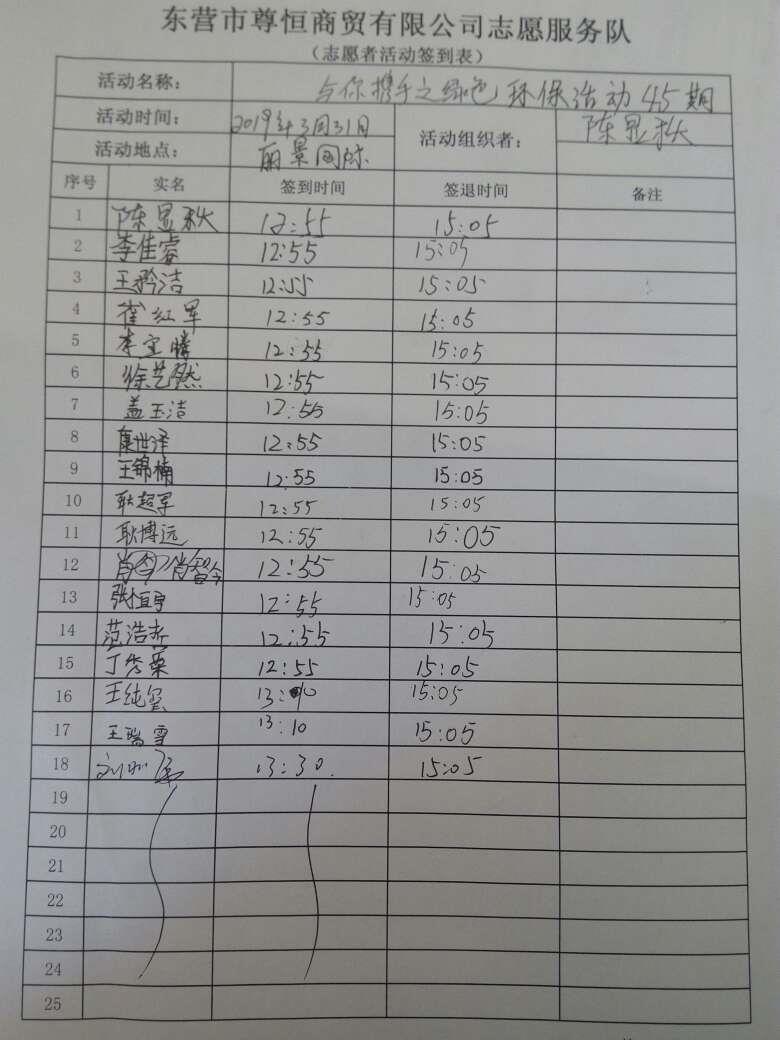 东营市尊恒商贸有限公司志愿服务队
（志愿者活动签到表）
活动名称： 与你携手之绿色环保活动45期
活动时间： 2019年3月31日 活动组织者： 陈显秋
活动地点： 丽景国际
序号 实名 签到时间 签退时间 备注
1 陈显秋 12:55 15:05
2 李佳睿 12:55 15:05
3 王矜洁 12:55 15:05
4 崔红军 12:55 15:05
5 李宜腾 12:55 15:05
6 徐艺然 12:55 15:05
7 盖玉洁 12:55 15:05
8 康世泽 12:55 15:05
9 王锦楠 12:55 15:05
10 耿超军 12:55 15:05
11 耿博远 12:55 15:05
12 肖智今 12:55 15:05
13 张恒宇 12:55 15:05
14 范浩 12:55 15:05
15 丁秀荣 12:55 15:05
16 王纯玺 13:10 15:05
17 王瑞雪 13:10 15:05
18 刘 13:30 15:05
19
20
21
22
23
24
25